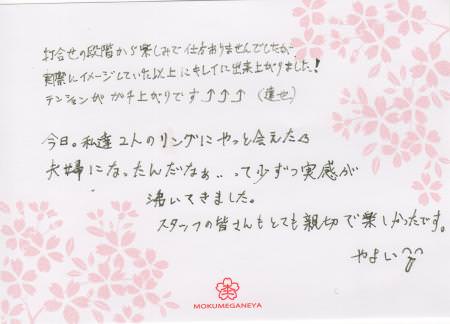 打合せの段階から楽しみで仕方ありませんでしたが
実際にイメージしていた以上にキレイに出来上がりました!
テンションがガチ上がりです↑↑↑ (達也)
今日。私達2人のリングにやっと会えた
夫婦になったんだなぁ..って少ずつ実感が
湧いてきました。
スタッフの皆さんもとても親切で楽しかったです。
やよい
MOKUMEGANEYA